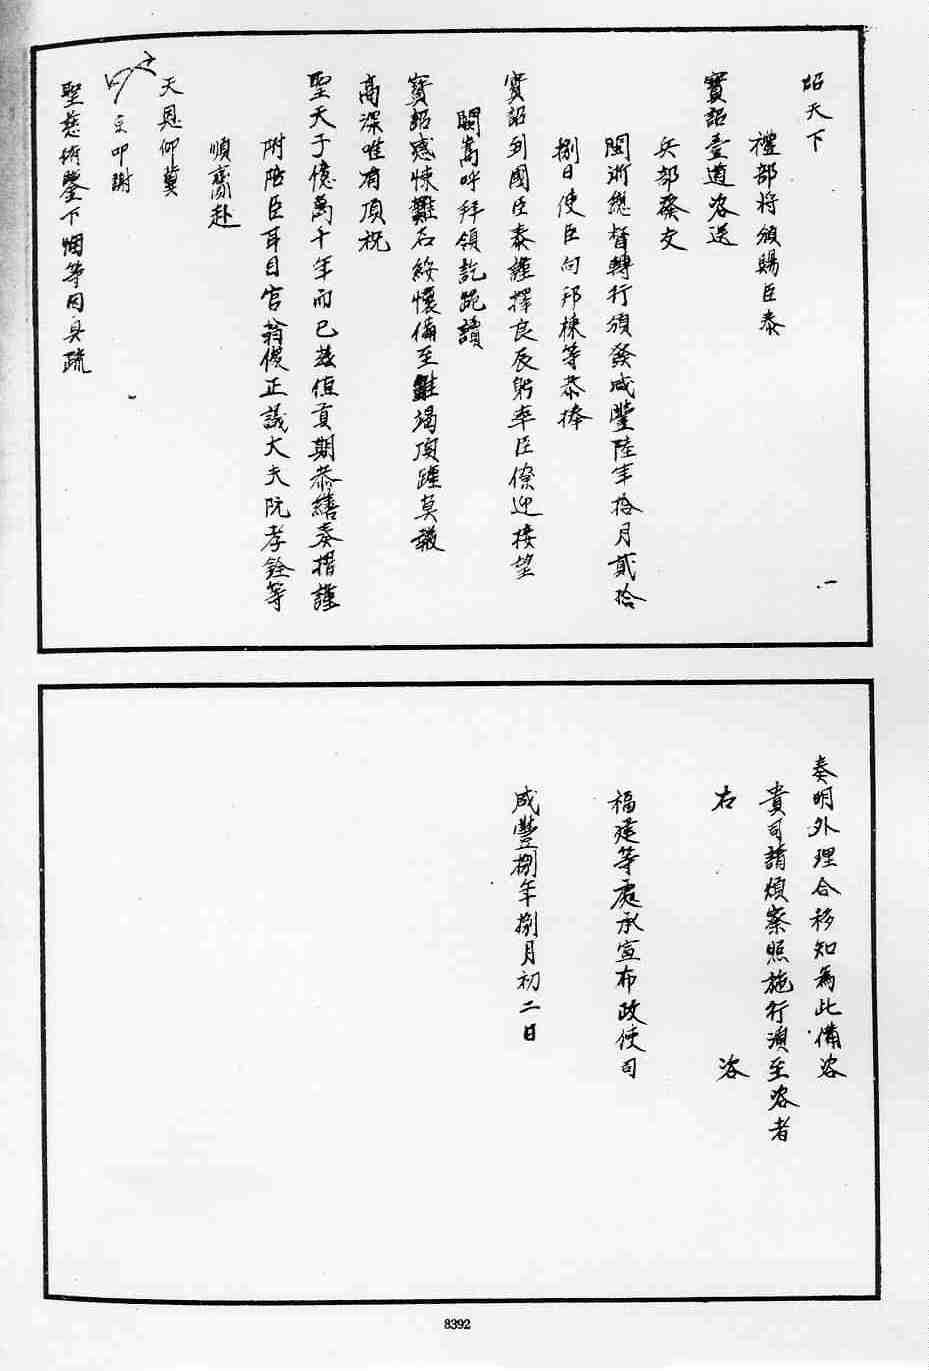 詔天下
禮部將頒賜臣泰
寶詔壹道咨送
兵部發交
閩浙總督轉行頒發咸豐陸年拾月貳拾
捌日使臣向邦棟等恭捧
寶詔到國臣泰謹擇良辰躬率臣僚迎接望
闕嵩呼拜領訖跪讀
寶詔感悚難名綏懷備至雖竭頂踵莫報
高深唯有頂祝
聖天子億萬千年而已茲值貢期恭繕奏摺謹
附陪臣耳目官翁俊正議大夫阮孝銓等
順齎赴
天恩仰冀
京叩謝
聖慈俯鑒下悃等因具疏
奏明外理合移知為此備咨
貴司請煩察照施行須至咨者
右 咨
福建等處承宣布政使司
咸豐捌年捌月初二日
8392